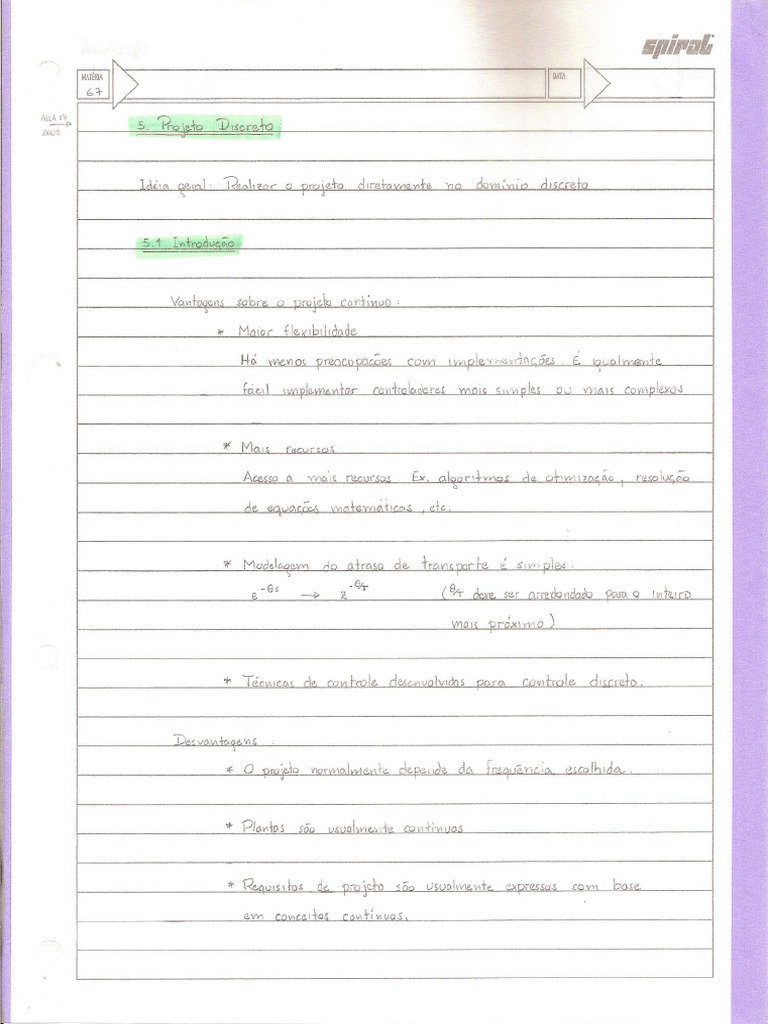 spiral
MATÉRIA
67
DATA
AULA 17
2003
5. Projeto Discreto
Idéia geral: Realizar o projeto diretamente no domínio discreto
5.1 Introdução
Vantagens sobre o projeto contínuo:
* Maior flexibilidade
Há menos preocupações com implementações. É igualmente
fácil implementar controladores mais simples ou mais complexos
* Mais recursos
Acesso a mais recursos. Ex. algoritmos de otimização, resolução
de equações matemáticas, etc.
* Modelagem do atraso de transporte é simples.
e^-θs → z^-θ/T (θ/T deve ser arredondado para o inteiro
mais próximo)
* Técnicas de controle desenvolvidas para controle discreto.
Desvantagens:
* O projeto normalmente depende da frequência escolhida.
* Plantas são usualmente contínuas
* Requisitos de projeto são usualmente expressos com base
em conceitos contínuos.